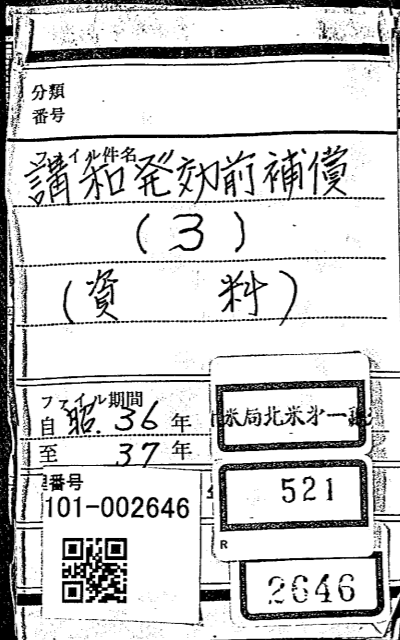 分類
番号
ファイル件名
講和発効前補償
(3)
(資 料)
ファイル期間
自 昭. 36 年
至 37 年
米局北米第一課
番号
101-002646
521
R
2646